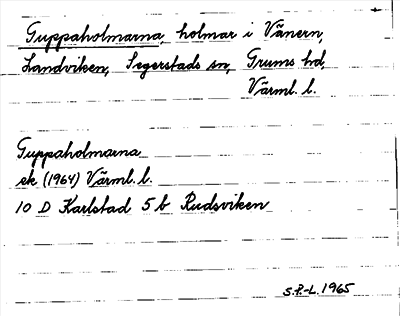 Guppaholmarna, holmar i Vänern,
Landviken, Segerstads sn, Grums hd,
Värml. l.
Guppaholmarna
ek (1964) Värml. l.
10 D Karlstad 5 b Rudsviken
S.P.-L. 1965